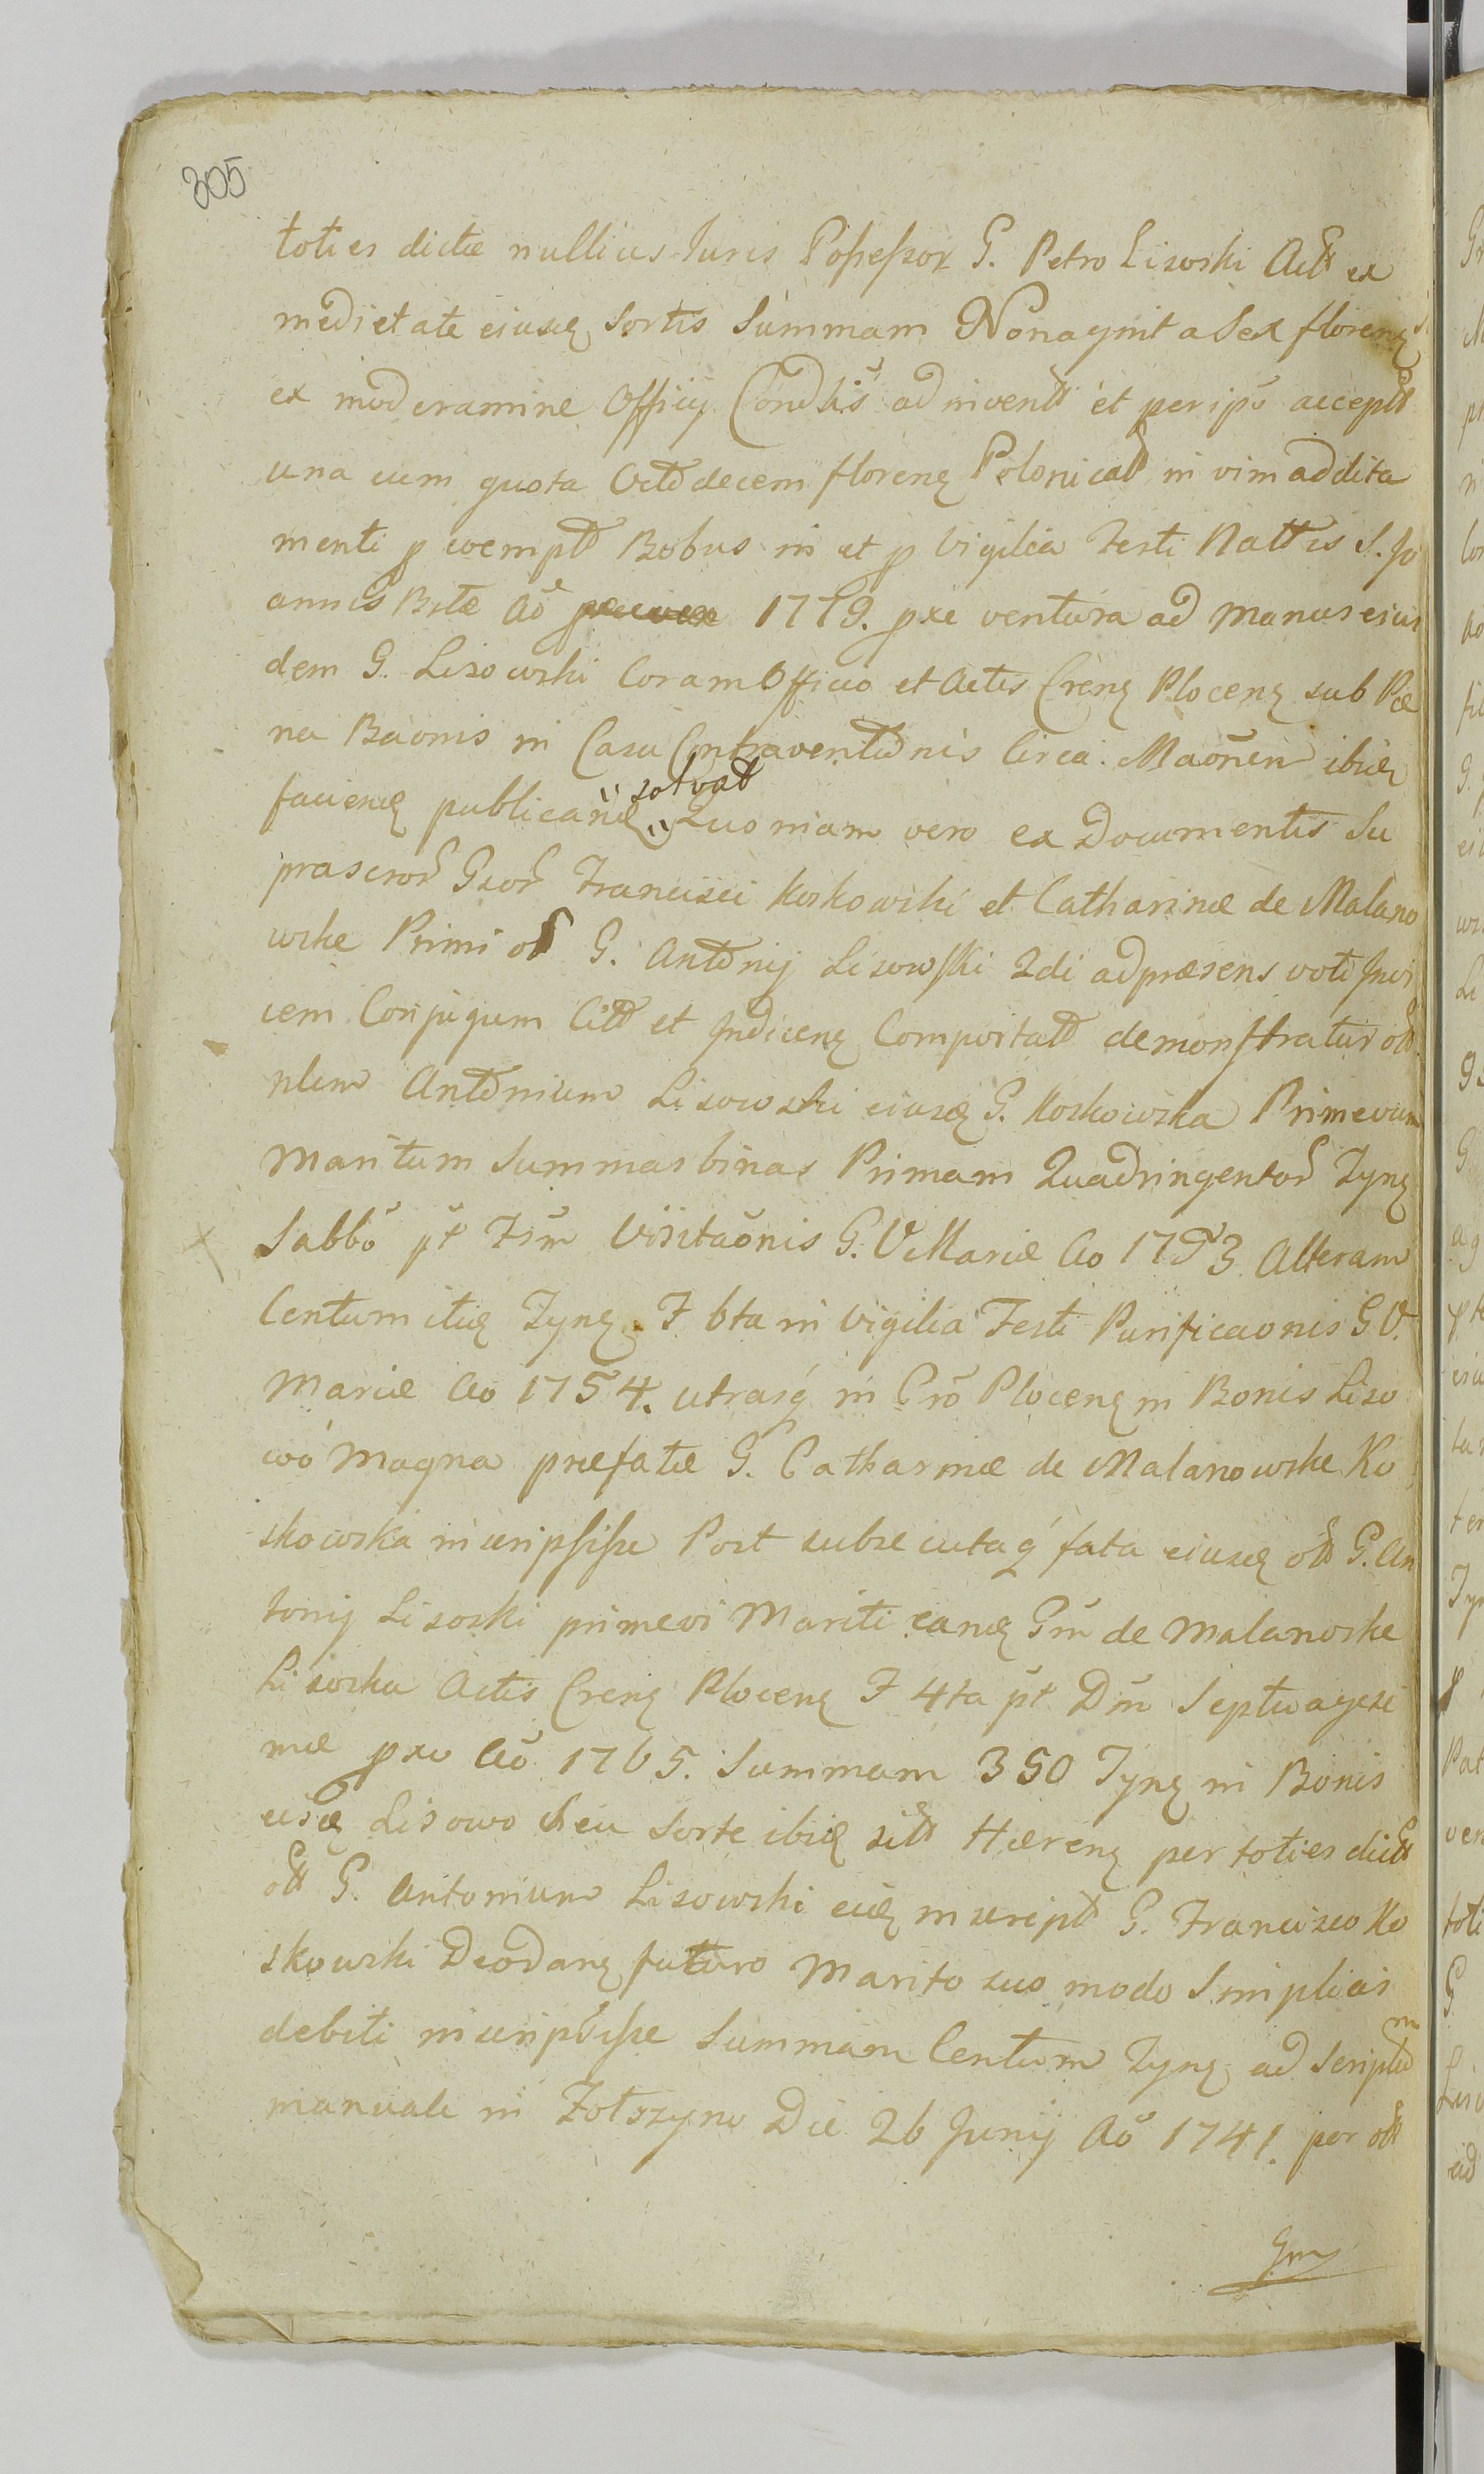 305
toties dictæ nullius Juris Possessor G. Petro Lisoski Actt ex
medietate eiusq Sortis Summam Nonaginta Sex florenq
ex moderamine Officij Condtis adinventt et per ipõ acceptt
una cum quota Octodecem florenq Polonicatt in vim addita
menti p coemptt Bobus in et p Vigilia Festi Nattis S. Jo
annis Btæ Aõ 1779. pxe ventura ad manus eius
dem G. Lisowski Coram Officio et Actis Crenq Plocenq sub Pæ
na Baonis in Casu Contraventionis Circa Maõnen ibiq
faciend publicand solvat Quoniam vero ex Documentis Su
prascror Gror Francisci Koskowski et Catharinæ de Malano
wske Primi ott G. Antonij Lisowski 2di ad præsens voti Invi
cem Conjugum Citt et Indicenq Comportatt demonstratur ott
nlem Antonium Lisowski eiusq G. Koskowska Primevum
Maritum Summas binas Primam Quadringentor Tynq
Sabbõ pt Fsm Visitaõnis G. V Mariæ Ao 1753 Alteram
Centum itiq Tynq F 6ta in Vigilia Festi Purificaonis G V.
Mariæ Ao 1754. utrasq in Crõ Plocenq in Bonis Liso
wo Magna præfatæ G. Catharinæ de Malanowske Ko
skowska inscripsisse Post subsecutaq fata eiusq ott G. An
tonij Lisoski primevi Mariti eanq Gm de Malanoske
Lisoska Actis Crenq Plocenq F 4ta pt Dm Septuagesi
mæ pxo Aõ 1765. Summam 350 Tynq in Bonis
eisq Lisowo seu Sorte ibiq sitt Hærenq per toties dictt
ott G. Antonium Lisowski eiq inscriptt G. Francisco Ko
skowski Deodanq futuro Marito suo modo Simplicis
debiti inscripsisse Summam Centum Tynq ad Scriptum
manuale in Zołszyno Die 26 Junij Aõ 1741. per ott
Gm